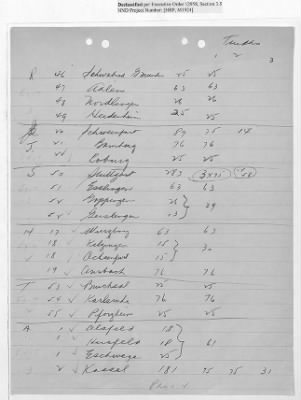 Declassified per Executive Order 12958, Section 3.5
NND Project Number: [NND, 883921]
Trucks
1 2 3
8 46 Schwabisch Gmund 25 25
47 Aalen 63 63
48 Nordlingen 26 26
49 Heidenheim 25 25
20 Schweinfurt 89 75 14
21 Bamberg 76 76
Coburg 25 25
S 50 Stuttgart 283 (3x75)
51 Esslingen 63 63
Goppingen 26
Geislingen 13 39
14 17 Wurzburg 63 63
18 Kitzingen 15 30
18 Ochsenfurt 15
19 Ansbach 76 76
T 53 Bruchsal 25 25
54 Karlsruhe 76 76
55 Pforzheim 25 25
A 1 Alsfeld 18
1 Hersfeld 18 61
1 Eschwege 25
2 Kassel 181 75 75 31